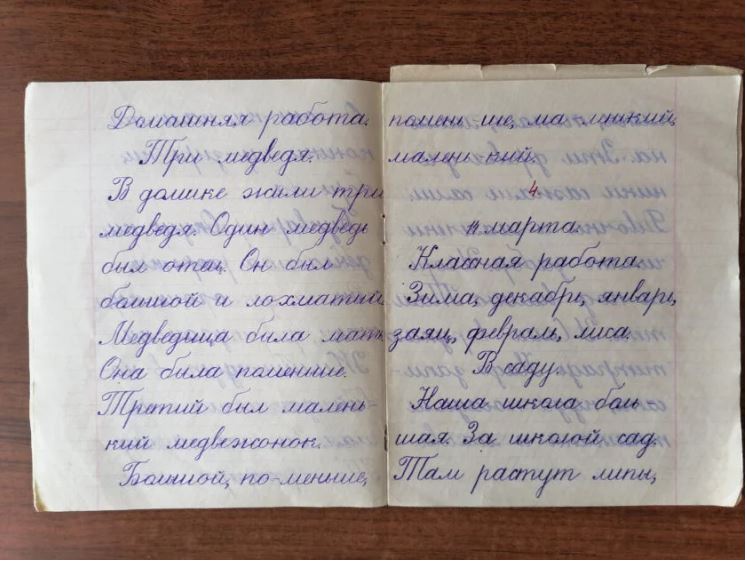 Домашняя работа.
Три медведя.
В домике жили три
медведя. Один медведь
был отец. Он был
большой и лохматый
Медведица была мать
Она была поменьше.
Третий был малень-
кий медвежонок.
Большой, по-меньше,
помень ше, ма линкий,
малень-кий.
4
11 марта.
Классная работа
Зима, декабрь, январь,
заяц, февраль, лиса.
В саду.
Наша школа боль
шая. За школой сад.
Там растут липы,